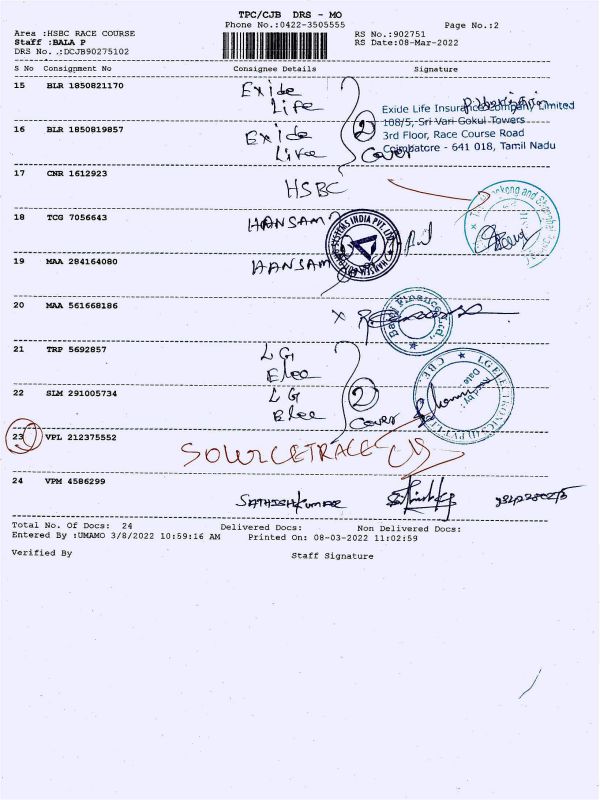 TPC/CJB DRS - MO
Phone No.:0422-3505555
Page No.:2
Area :HSBC RACE COURSE
RS No.:902751
Staff :BALA P
RS Date:08-Mar-2022
DRS No. .:DCJB90275102
S No Consignment No Consignee Details Signature
15 BLR 1850821170 Exide
Life
Exide Life Insurance Company Limited
108/5, Sri Vari Gokul Towers
3rd Floor, Race Course Road
Coimbatore - 641 018, Tamil Nadu
16 BLR 1850819857 Exide
Live
2
Cover
17 CNR 1612923
HSBC
18 TCG 7056643 HANSAM
SYSTEMS INDIA PVT. LTD.
19 MAA 284164080 HANSAM
20 MAA 561668186 X
Bajaj Finance Ltd.,
21 TRP 5692857 LG
Elec
22 SLM 291005734 LG
Elec
2
Cover
LG ELECTRONICS
CBE
Date :
23 VPL 212375552
SOURCETRACE
24 VPM 4586299
SATHISHKUMAR
Total No. Of Docs: 24 Delivered Docs: Non Delivered Docs:
Entered By :UMAMO 3/8/2022 10:59:16 AM Printed On: 08-03-2022 11:02:59
Verified By Staff Signature